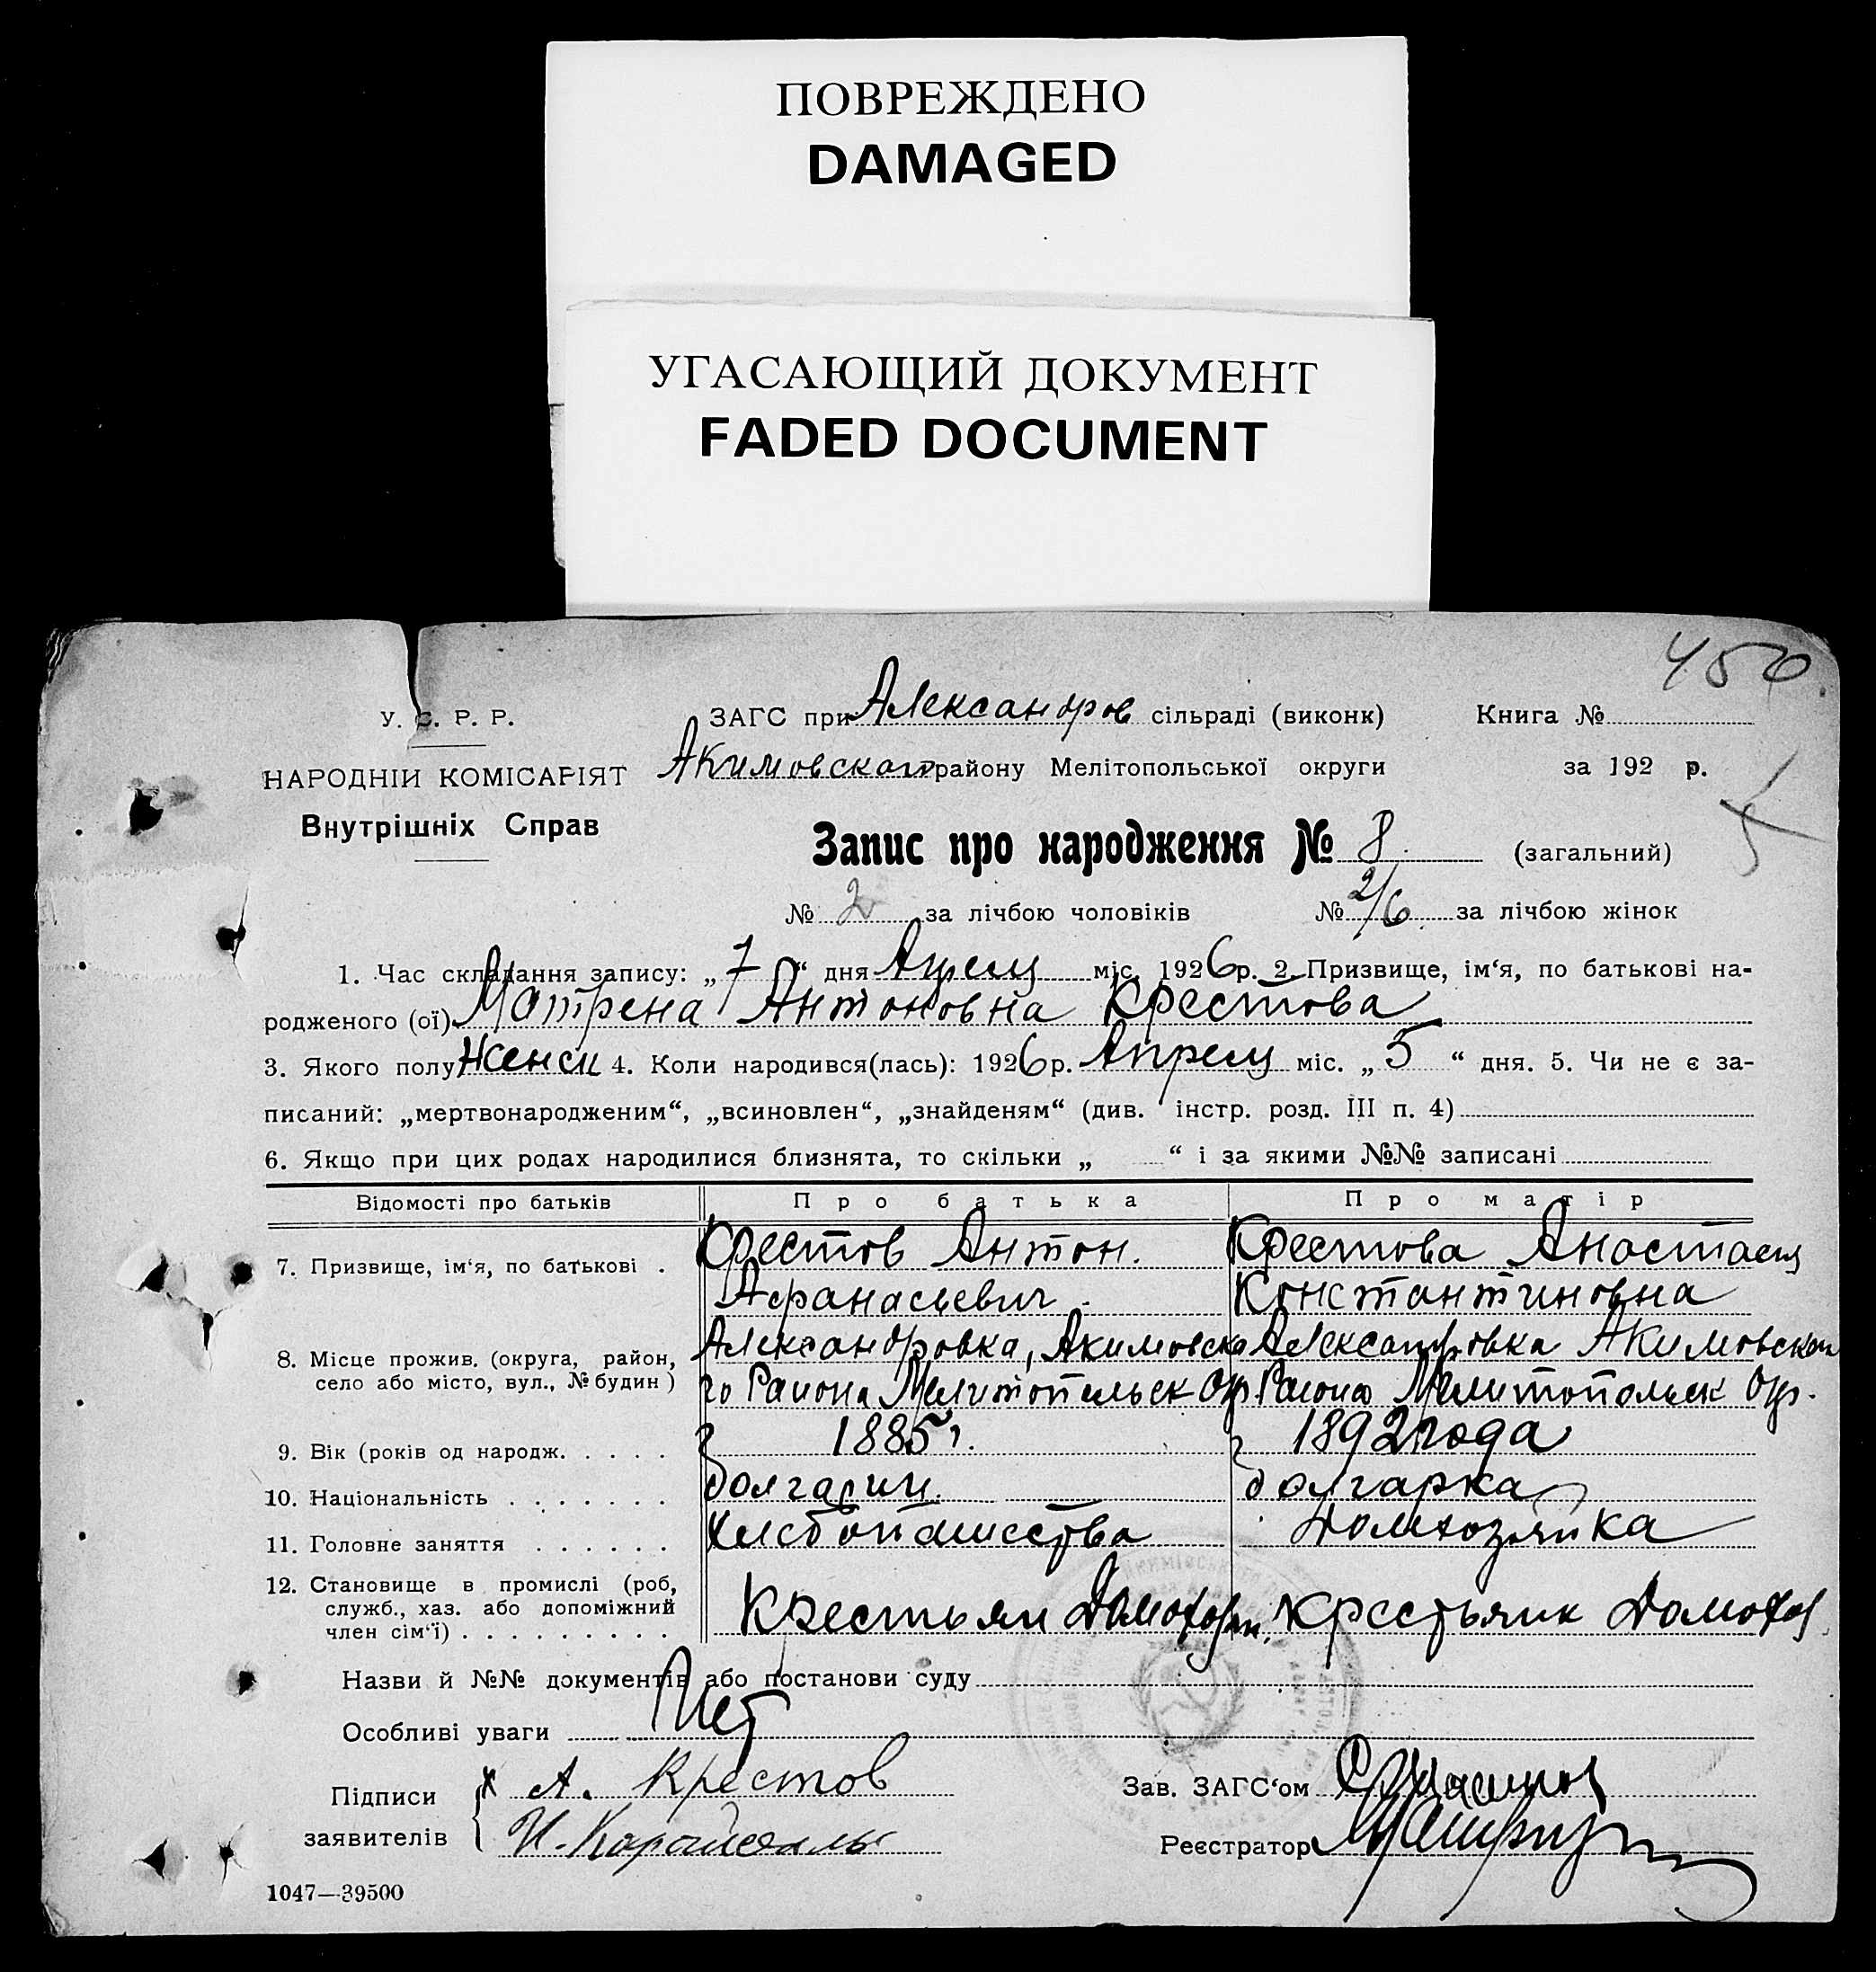 ПОВРЕЖДЕНО
DAMAGED
УГАСАЮЩИЙ ДОКУМЕНТ
FADED DOCUMENT
450.
У. С. Р. Р.
ЗАГС при Александров сільраді (виконк) Книга №
НАРОДНІЙ КОМІСАРІЯТ Акимовского району Мелітопольської округи за 192 р.
Внутрішніх Справ
Запис про народження № 8. (загальний)
№ 2 за лічбою чоловіків № 2/6 за лічбою жінок
1. Час складання запису: „7“ дня Апреля міс. 1926 р. 2. Призвище, ім‘я, по батькові на-
родженого (ої) Матрена Антоновна Крестова
3. Якого полу Женск 4. Коли народився(лась): 1926 р. Апреля міс. „5“ дня. 5. Чи не є за-
писаний: „мертвонародженим“, „всиновлен“, „знайденям“ (див. інстр. розд. III п. 4)
6. Якщо при цих родах народилися близнята, то скільки „ “ і за якими №№ записані
Відомості про батьків Про батька Про матір
7. Призвище, ім‘я, по батькові . Крестов Антон. Крестова Анастасия
Афанасьевич Константиновна
8. Місце прожив. (округа, район, Александровка, Акимовска Александровка Акимовского
село або місто, вул., № будин) го Района Мелитопольск Окр. Района Мелитопольск Окр.
9. Вік (років од народж. . . . . 1885 г. 1892 года
10. Національність . . . . . . . болгарин. болгарка
11. Головне заняття . . . . . . Хлебопашества Домхозяйка
12. Становище в промислі (роб,
служб., хаз. або допоміжний
член сім‘ї) . . . . . . . . . Крестьян Домохозяин, Крестьянк Домохоз.
Назви й №№ документів або постанови суду
Особливі уваги Нет
Підписи А. Крестов Зав. ЗАГС‘ом
заявителів И. Реєстратор
1047—39500